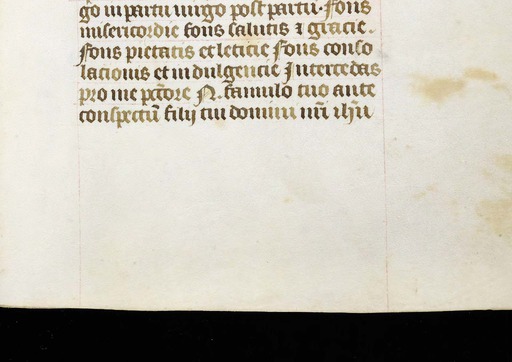 go in partu uirgo post partu. Fons
misericordie fons salutis ⁊ gracie.
Fons pietatis et leticie Fons conso
lacionis et indulgencie Intercedas
pro me pctore N. famulo tuo ante
conspectū filij tui domini nr̄i ih̄u